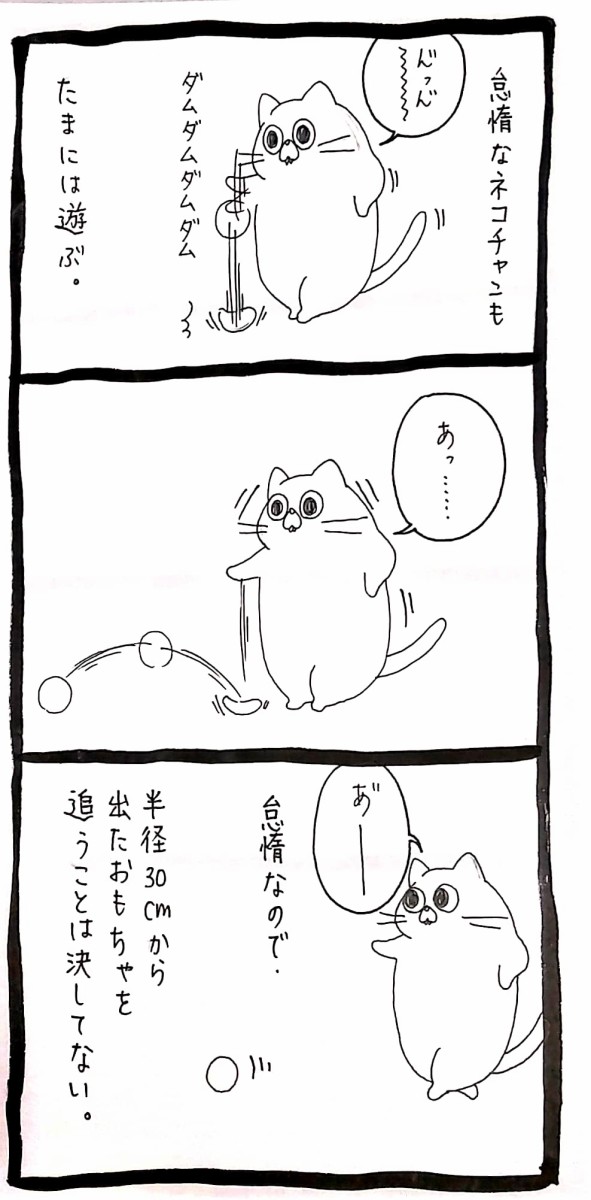 怠惰なネコチャンも
んっん゛〜〜〜
ダムダムダムダム
たまには遊ぶ。
あっ………
あ゛ー
怠惰なので、
半径30cmから
出たおもちゃを
追うことは決してない。